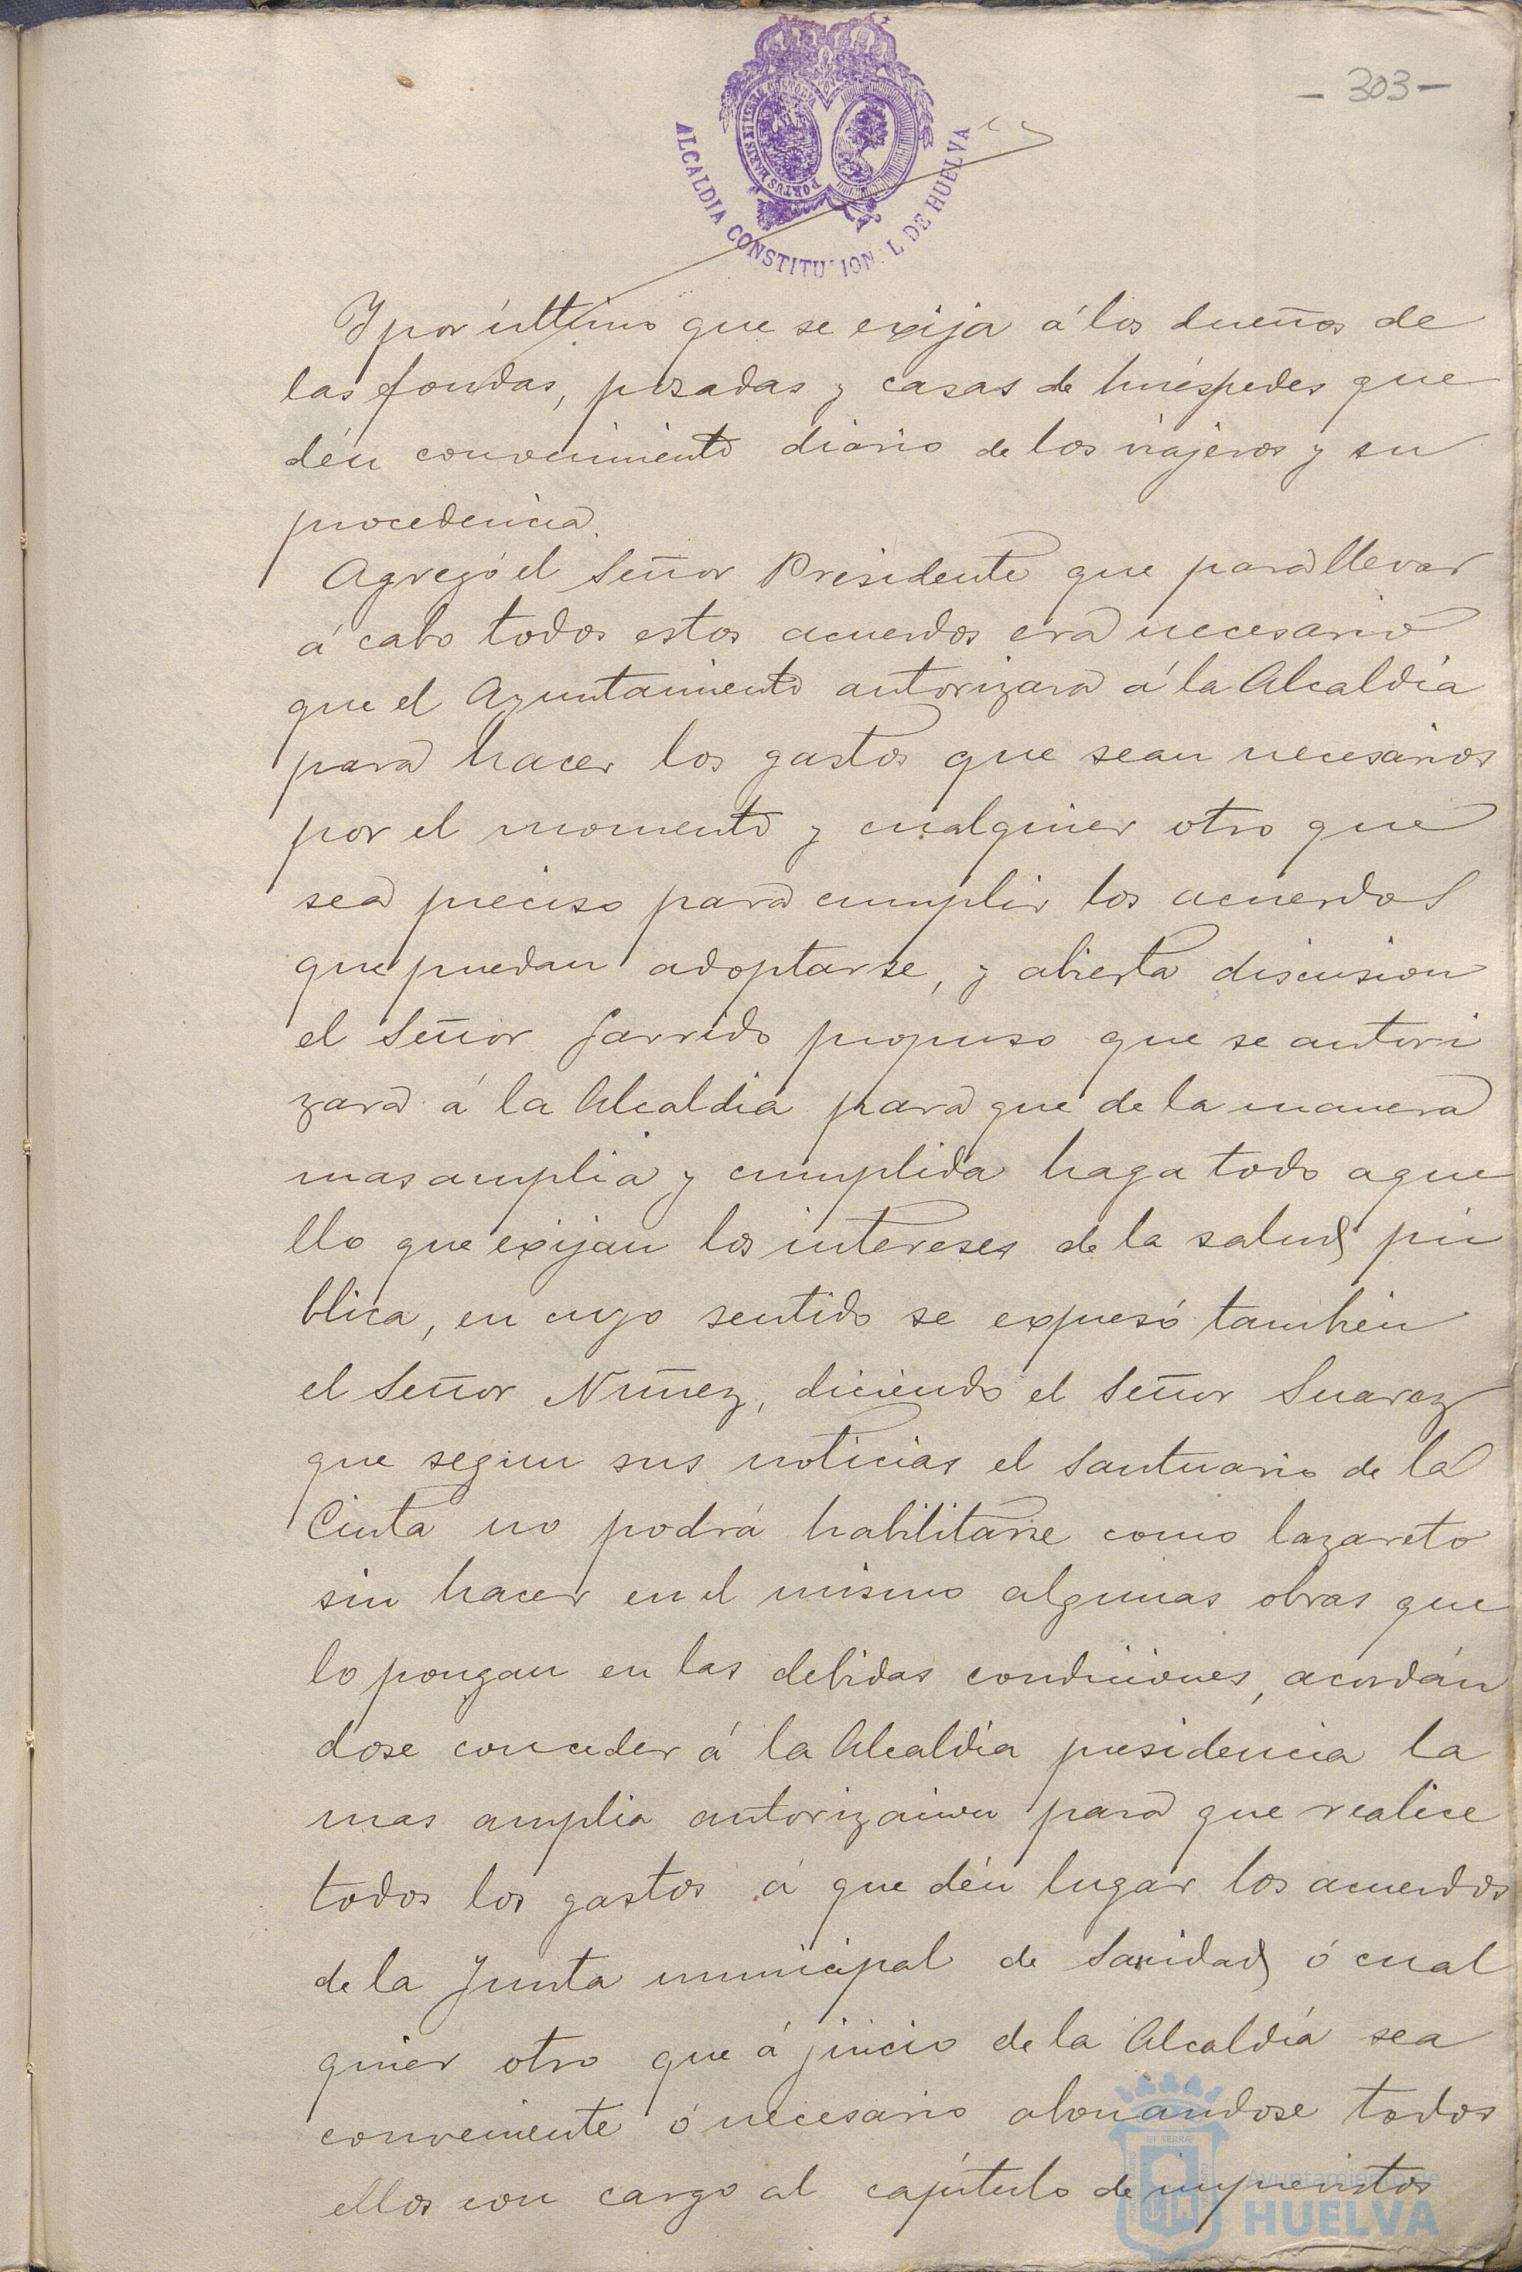 - 303 -
ALCALDIA CONSTITU IONAL DE HUELVA
PORTUS MARIS
Y por último que se exija á los dueños de
las fondas, posadas y casas de huéspedes que
dén conocimiento diario de los viajeros y su
procedencia.
Agregó el Señor Presidente que para llevar
á cabo todos estos acuerdos era necesario
que el Ayuntamiento autorizara á la Alcaldía
para hacer los gastos que sean necesarios
por el momento y cualquier otro que
sea preciso para cumplir los acuerdos
que puedan adoptarse, y abierta discusion
el Señor Garrido propuso que se autori
zara á la Alcaldia para que de la manera
mas amplia y cumplida haga todo aque
llo que exijan los intereses de la salud pú
blica, en cuyo sentido se expresó tambien
el Señor Nuñez, diciendo el Señor Suarez
que segun sus noticias el Santuario de la
Cinta no podrá habilitarse como lazareto
sin hacer en el mismo algunas obras que
lo pongan en las debidas condiciones, acordán
dose conceder á la Alcaldía presidencia la
mas amplia autorizacion para que realice
todos los gastos á que dén lugar los acuerdos
de la Junta municipal de Sanidad ó cual
quier otro que á juicio de la Alcaldía sea
conveniente ó necesario abonandose todos
ellos con cargo al capítulo de imprevistos
Ayuntamiento de
HUELVA